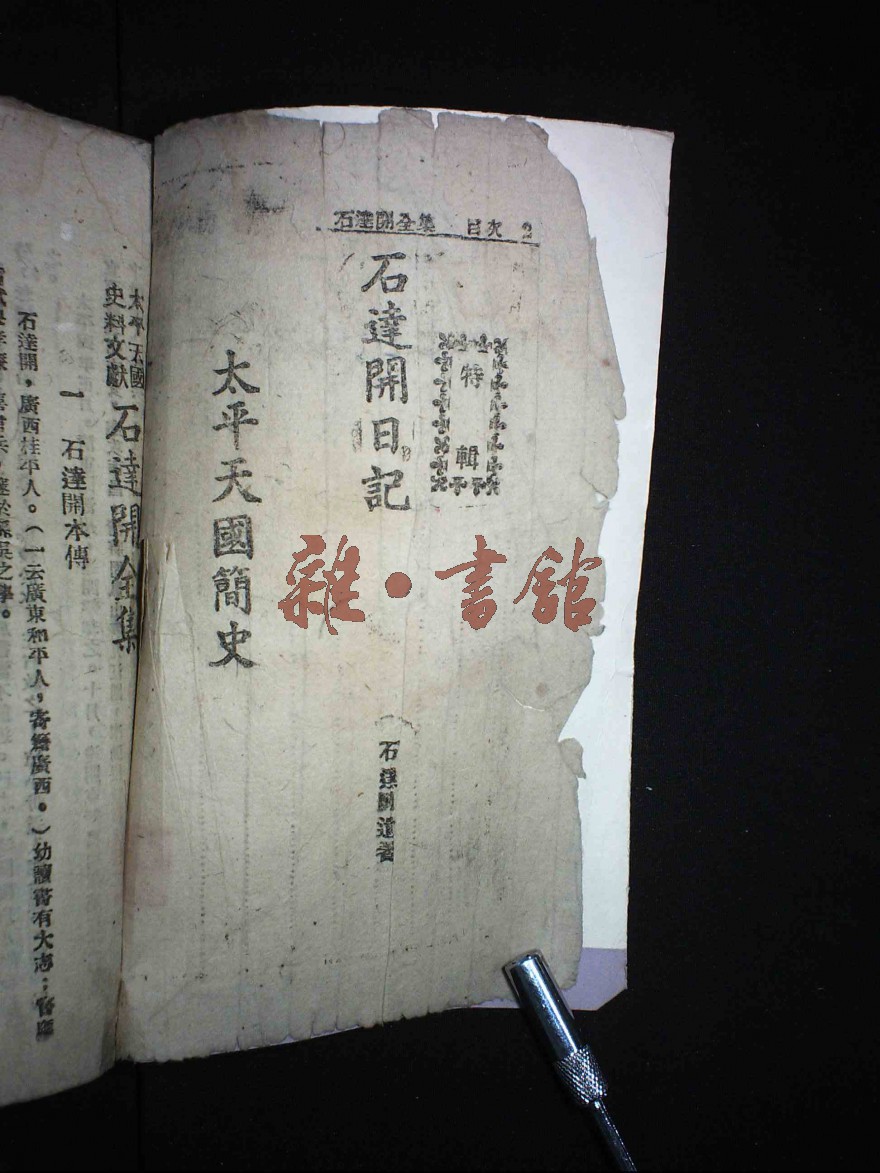 石達開全集 目次 2
特輯
石達開日記
(石達開遺著
太平天國簡史
雜·書館
太平天國
史料文獻
石達開全集
一 石達開本傳
石達開,廣西桂平人。(一云廣東和平人,寄籍廣西。)幼讀書有大志;嘗
孫吳之學。